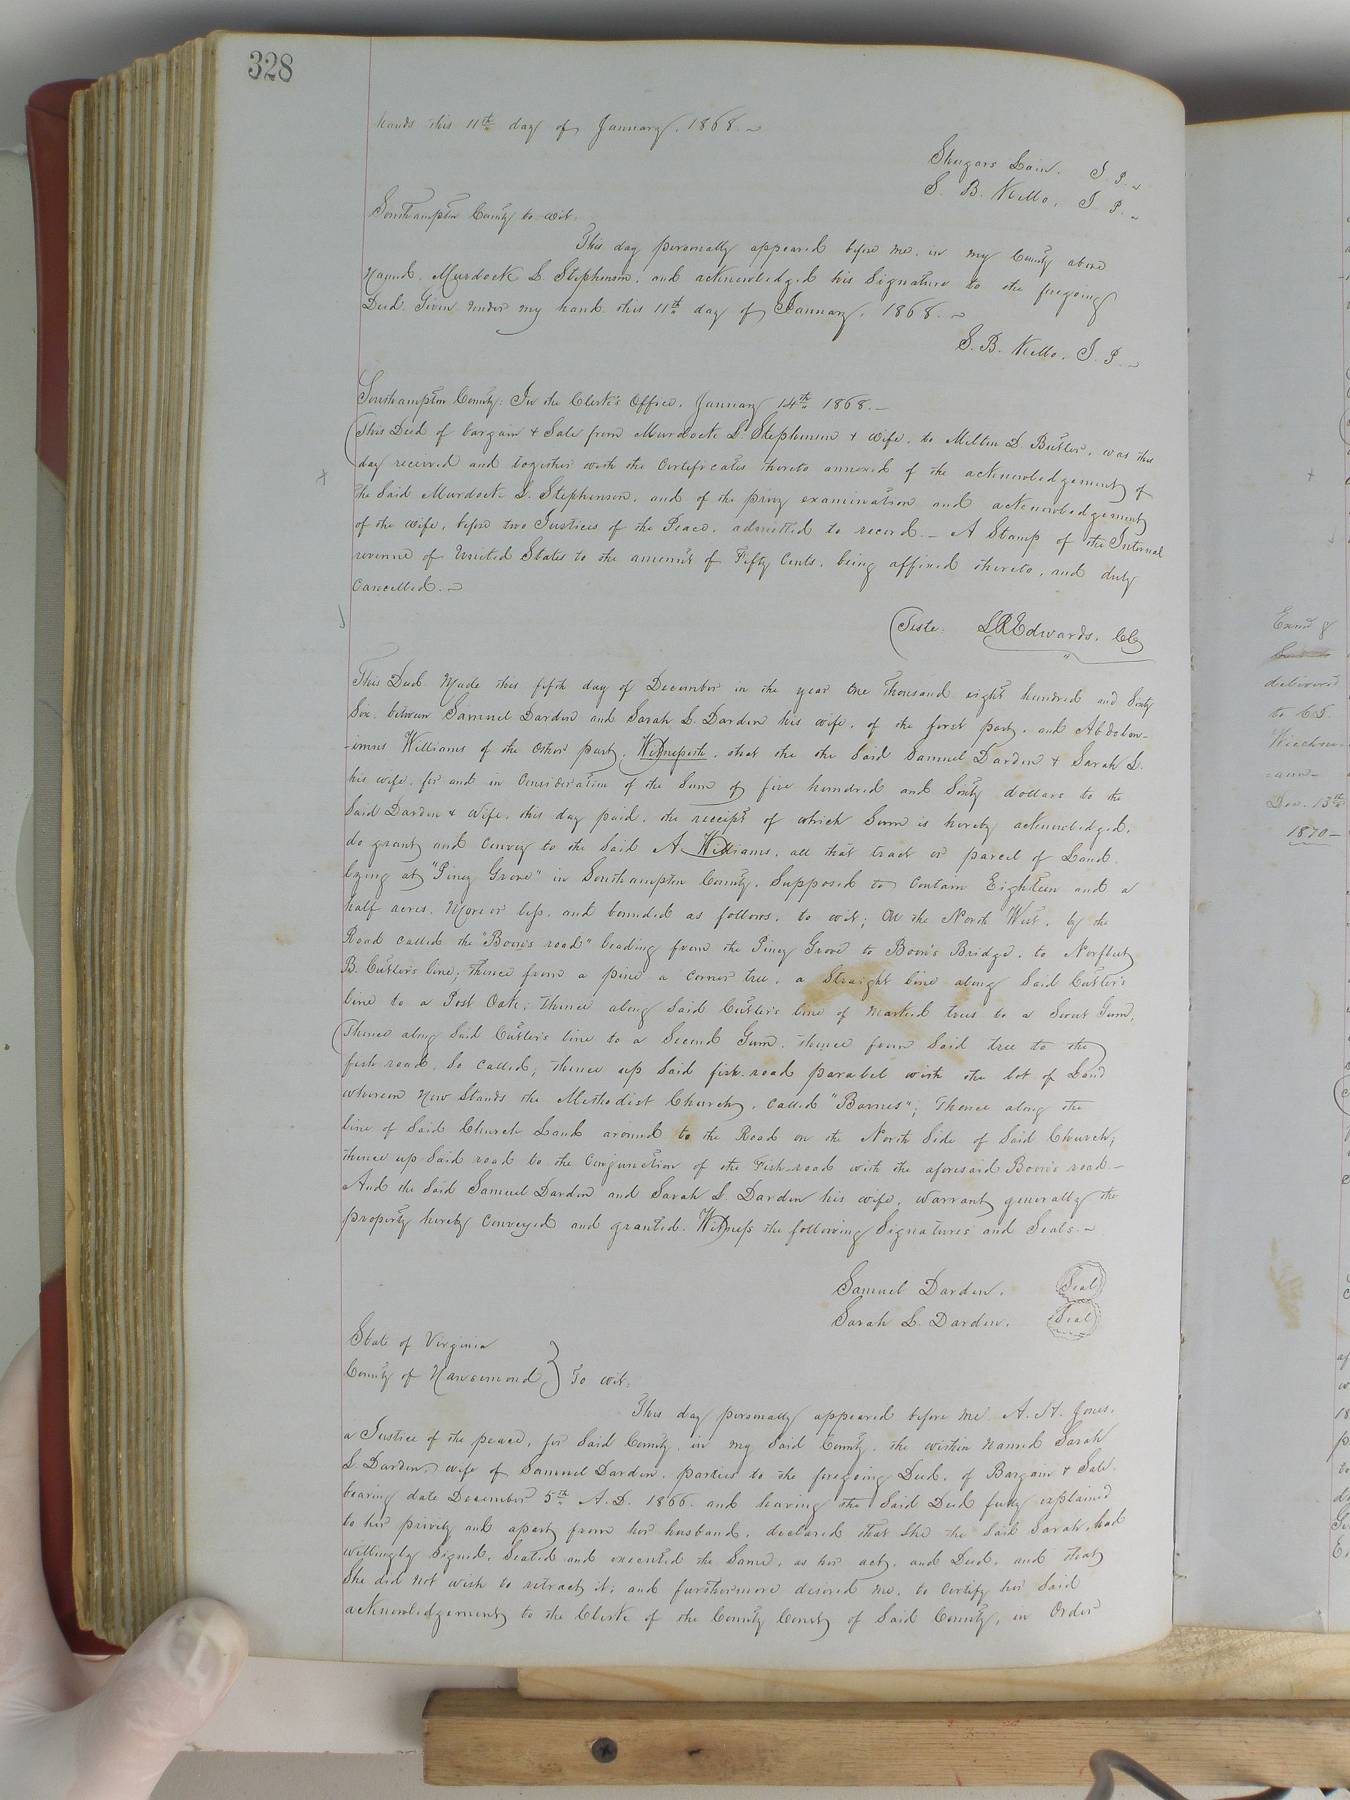 328
hands this 11th day of January, 1868.
Shugars Lain. J. P.
S. B. Kello, J. P.
Southampton County to wit.
This day personally appeared before me, in my County above
Named, Murdock L. Stephenson, and acknowledged his Signature to the foregoing
Deed. Given under my hand this 11th day of January, 1868.
S. B. Kello, J. P.
Southampton County: In the Clerk's Office, January 14th 1868.
This Deed of bargain & Sale from Murdock L Stephenson & wife, to Milton D. Butler, was this
day received and together with the Certificates thereto annexed of the acknowledgement of
the Said Murdock L. Stephenson, and of the privy examination and acknowledgement
of the wife, before two Justices of the Peace, admitted to record. A Stamp of the Internal
revenue of United States to the amount of Fifty Cents, being affixed thereto, and duly
Cancelled.
Teste. LREdwards, CC
This Deed Made this fifth day of December in the year One Thousand eight hundred and Sixty
Six between Samuel Darden and Sarah L. Darden his wife, of the first part, and Abdolon-
-imus Williams of the other part, Witnesseth, that the the Said Samuel Darden & Sarah L.
his wife, for and in Consideration of the Sum of five hundred and Sixty dollars to the
Said Darden & Wife, this day paid, the receipt of which Sum is hereby acknowledged,
do grant and Convey to the Said A Williams, all that tract or parcel of Land
lying at "Piney Grove" in Southampton County, Supposed to Contain Eighteen and a
half acres, More or less, and bounded as follows, to wit; On the North West, by the
Road called the "Boon's road" leading from the Piney Grove to Boon's Bridge, to Norfleet
B. Cutler's line; thence from a pine a corner tree, a Straight line along Said Cutler's
line to a Post Oak; thence along Said Cutler's line of Marked trees to a Sweet Gum,
Thence along Said Cutler's line to a Second Gum, thence from Said tree to the
fish road, So called; thence up Said fish-road parallel with the lot of Land
whereon Now Stands the Methodist Church, called "Barnes"; Thence along the
line of Said Church Land around to the Road on the North Side of Said Church;
thence up Said road to the Conjunction of the Fish-road with the aforesaid Boon's road-
And the Said Samuel Darden and Sarah L. Darden his wife, Warrant generally the
property hereby Conveyed and granted. Witness the following Signatures and Seals.
Samuel Darden. Seal
Sarah L. Darden. Seal
State of Virginia
County of Nansemond, } To wit.
This day personally appeared before me A. H. Jones,
a Justice of the peace, for Said County, in my Said County, the within Named Sarah
L. Darden, wife of Samuel Darden, parties to the foregoing Deed, of Bargain & Sale
bearing date December 5th A.D. 1866. and having the Said Deed fully explained
to her privily and apart from her husband, declared that She the Said Sarah, had
willingly Signed, Sealed and executed the Same, as her act, and Deed, and that
She did not wish to retract it, and furthermore desired me, to Certify her Said
acknowledgement to the Clerk of the County Court of Said County, in Order
Exmd &
delivered
to
Dec. 13th
1870-